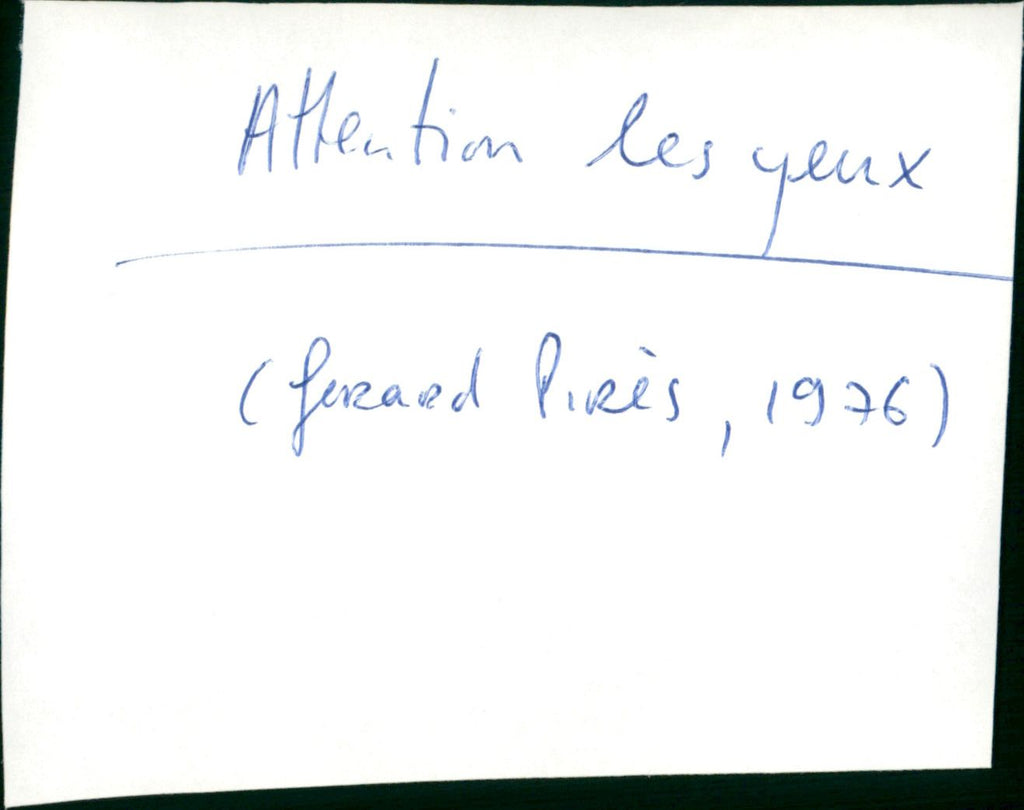 Attention les yeux
(Gerard Pirès, 1976)